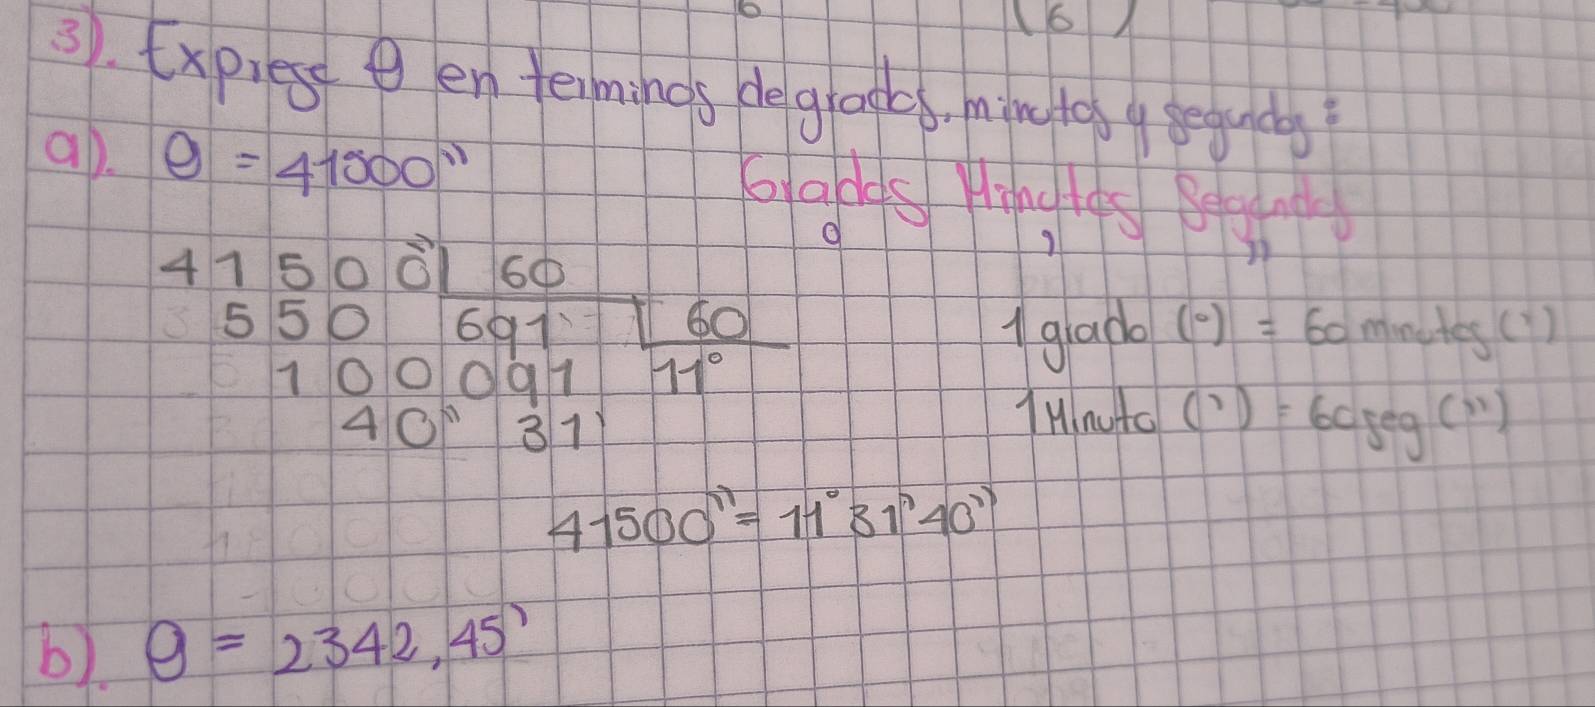 3). Exprese θ en terminos de grados, minutos y segundos:
a). θ = 41500"
Grados Minutos Segundos
° ' "
41500" 60
550 691' 60
100 091 11°
40" 31'
1 grado (°) = 60 minutos (')
1 Minuto (') = 60 seg (")
41500" = 11° 31' 40"
b). θ = 2342,45'